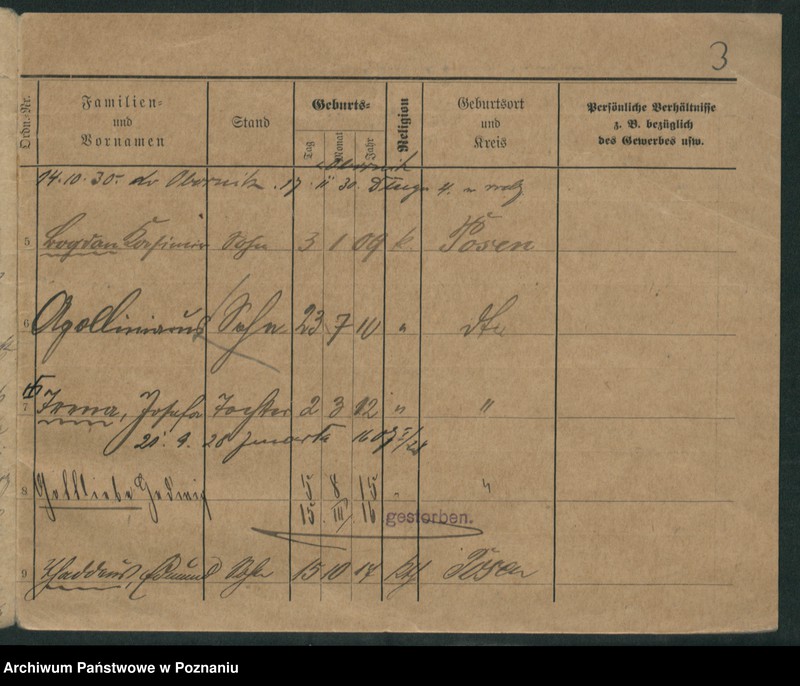 3
Ordn.-Nr. Familien- und Vornamen Stand Geburts- Tag Monat Jahr Religion Geburtsort und Kreis Persönliche Verhältnisse z. B. bezüglich des Gewerbes usw.
Obornik
14.10.30. Obornik 17 30.
5 Bogdan Kasimir Sohn 3 1 09 k. Posen
6 Apollinarus Sohn 23 7 10 " dto
7 Irena, Josefa Tochter 2 3 12 " "
20. 9. 28
8 Gottliebe Hedwig 5 8 15 " "
15 III 16 gestorben.
9 Thaddeus, Edmund Sohn 15 10 17 kth Posen
Archiwum Państwowe w Poznaniu